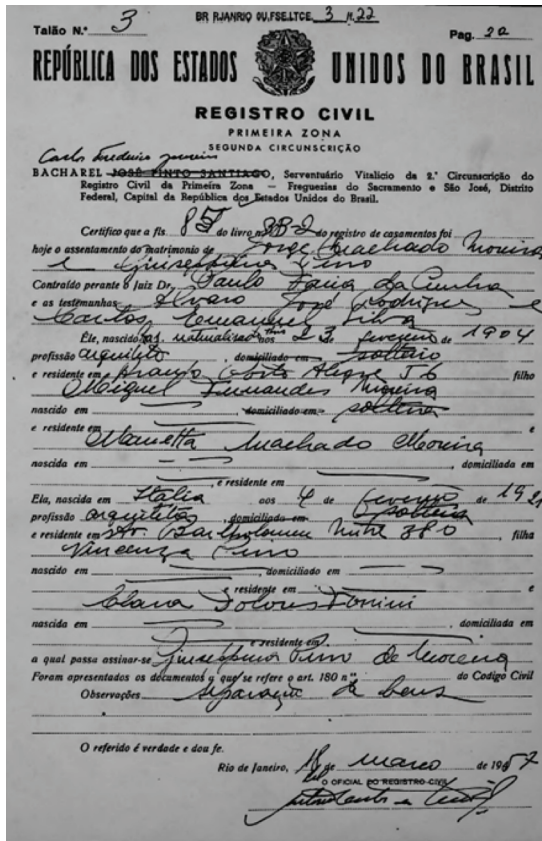 BR RJANRIO OU,FSE.LTCE. 3 , n.22
Talão N.º 3 Pag. 20
REPÚBLICA DOS ESTADOS UNIDOS DO BRASIL
REGISTRO CIVIL
PRIMEIRA ZONA
SEGUNDA CIRCUNSCRIÇÃO
Carlos Frederico
BACHAREL JOSÉ PINTO SANTIAGO, Serventuário Vitalício da 2.ª Circunscrição do
Registro Civil da Primeira Zona — Freguezias do Sacramento e São José, Distrito
Federal, Capital da República dos Estados Unidos do Brasil.
Certifico que a fls. do livro nº do registro de casamentos foi
hoje o assentamento do matrimonio de Jorge Machado Moreira
e Giuseppina Pirro
Contraído perante o Juiz Dr. Paulo Faria da Cunha
e as testemunhas Alvaro José Rodrigues e
Carlos Emanuel Silva
Ele, nascido naturalizado aos 23 de fevereiro de 1904
profissão arquiteto , domiciliado em solteiro
e residente em Araujo Porto Alegre 56 filho
Miguel Fernandes Moreira
nascido em , domiciliado em solteiro
e residente em e
Marietta Machado Moreira
nascida em , domiciliada em
, e residente em
Ela, nascida em Italia aos 4 de fevereiro de 1921
profissão arquiteta , domiciliada em solteira
e residente em Av. Bartolomeu Mitre 380 , filha
Vincenza Pirro
nascido em , domiciliado em
e residente em e
Clara Dolores Tonini
nascida em , domiciliada em
e residente em
a qual passa assinar-se Giuseppina Pirro de Moreira
Foram apresentados os documentos a que se refere o art. 180 nº do Codigo Civil
Observações separação de bens
O referido é verdade e dou fe.
Rio de Janeiro, 18 de março de 1957
O OFICIAL DO REGISTRO CIVIL